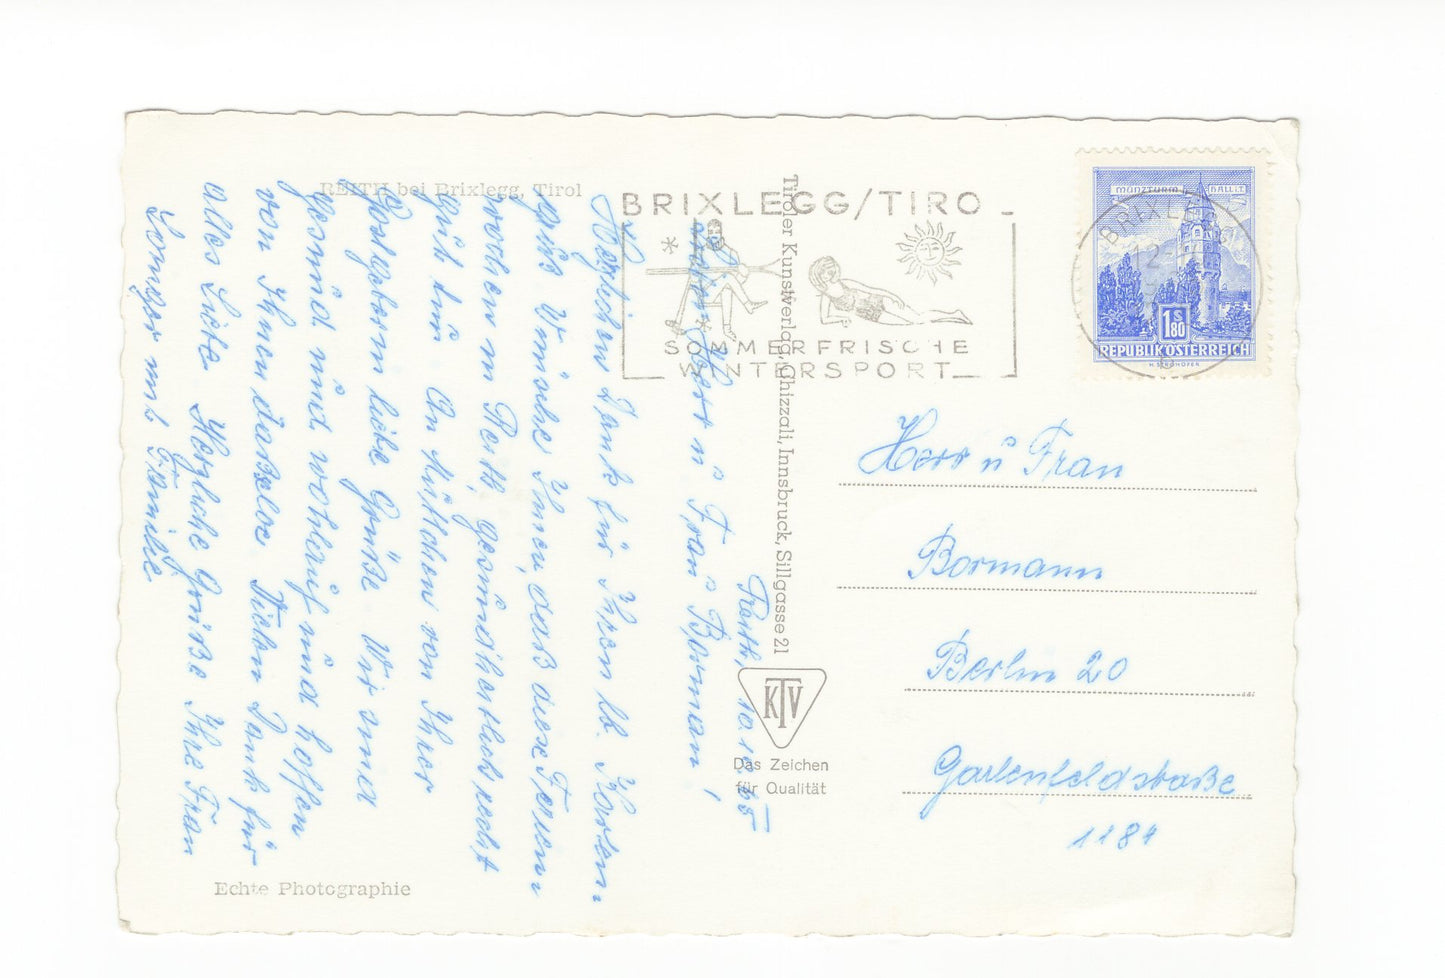 REITH bei Brixlegg, Tirol
BRIXLEGG/TIRO
SOMMERFRISCHE
WINTERSPORT
MÜNZTURM HALL I.T.
S
1.80
REPUBLIK ÖSTERREICH
H. STROHOFER
BRIXLEGG
12
Reith, 10.10.65
Herr u Frau Borman!
Herzlichen Dank für Ihren lb. Karten
gruß Wünsche Ihnen, daß diese Ferien
wochen in Reith, gesundheitlich recht
gut tun
von Ihrer
liebe Grüße Wir sind
gesund und wohlauf und hoffen
von Ihnen dasselbe. Vielen Dank für
alles Liebe. Herzliche Grüße Ihre Frau
mit Familie
Tiroler Kunstverlag Chizzali, Innsbruck, Sillgasse 21
KTV
Das Zeichen
für Qualität
Herr u Frau
Bormann
Berlin 20
Gartenfeldstraße
118
Echte Photographie